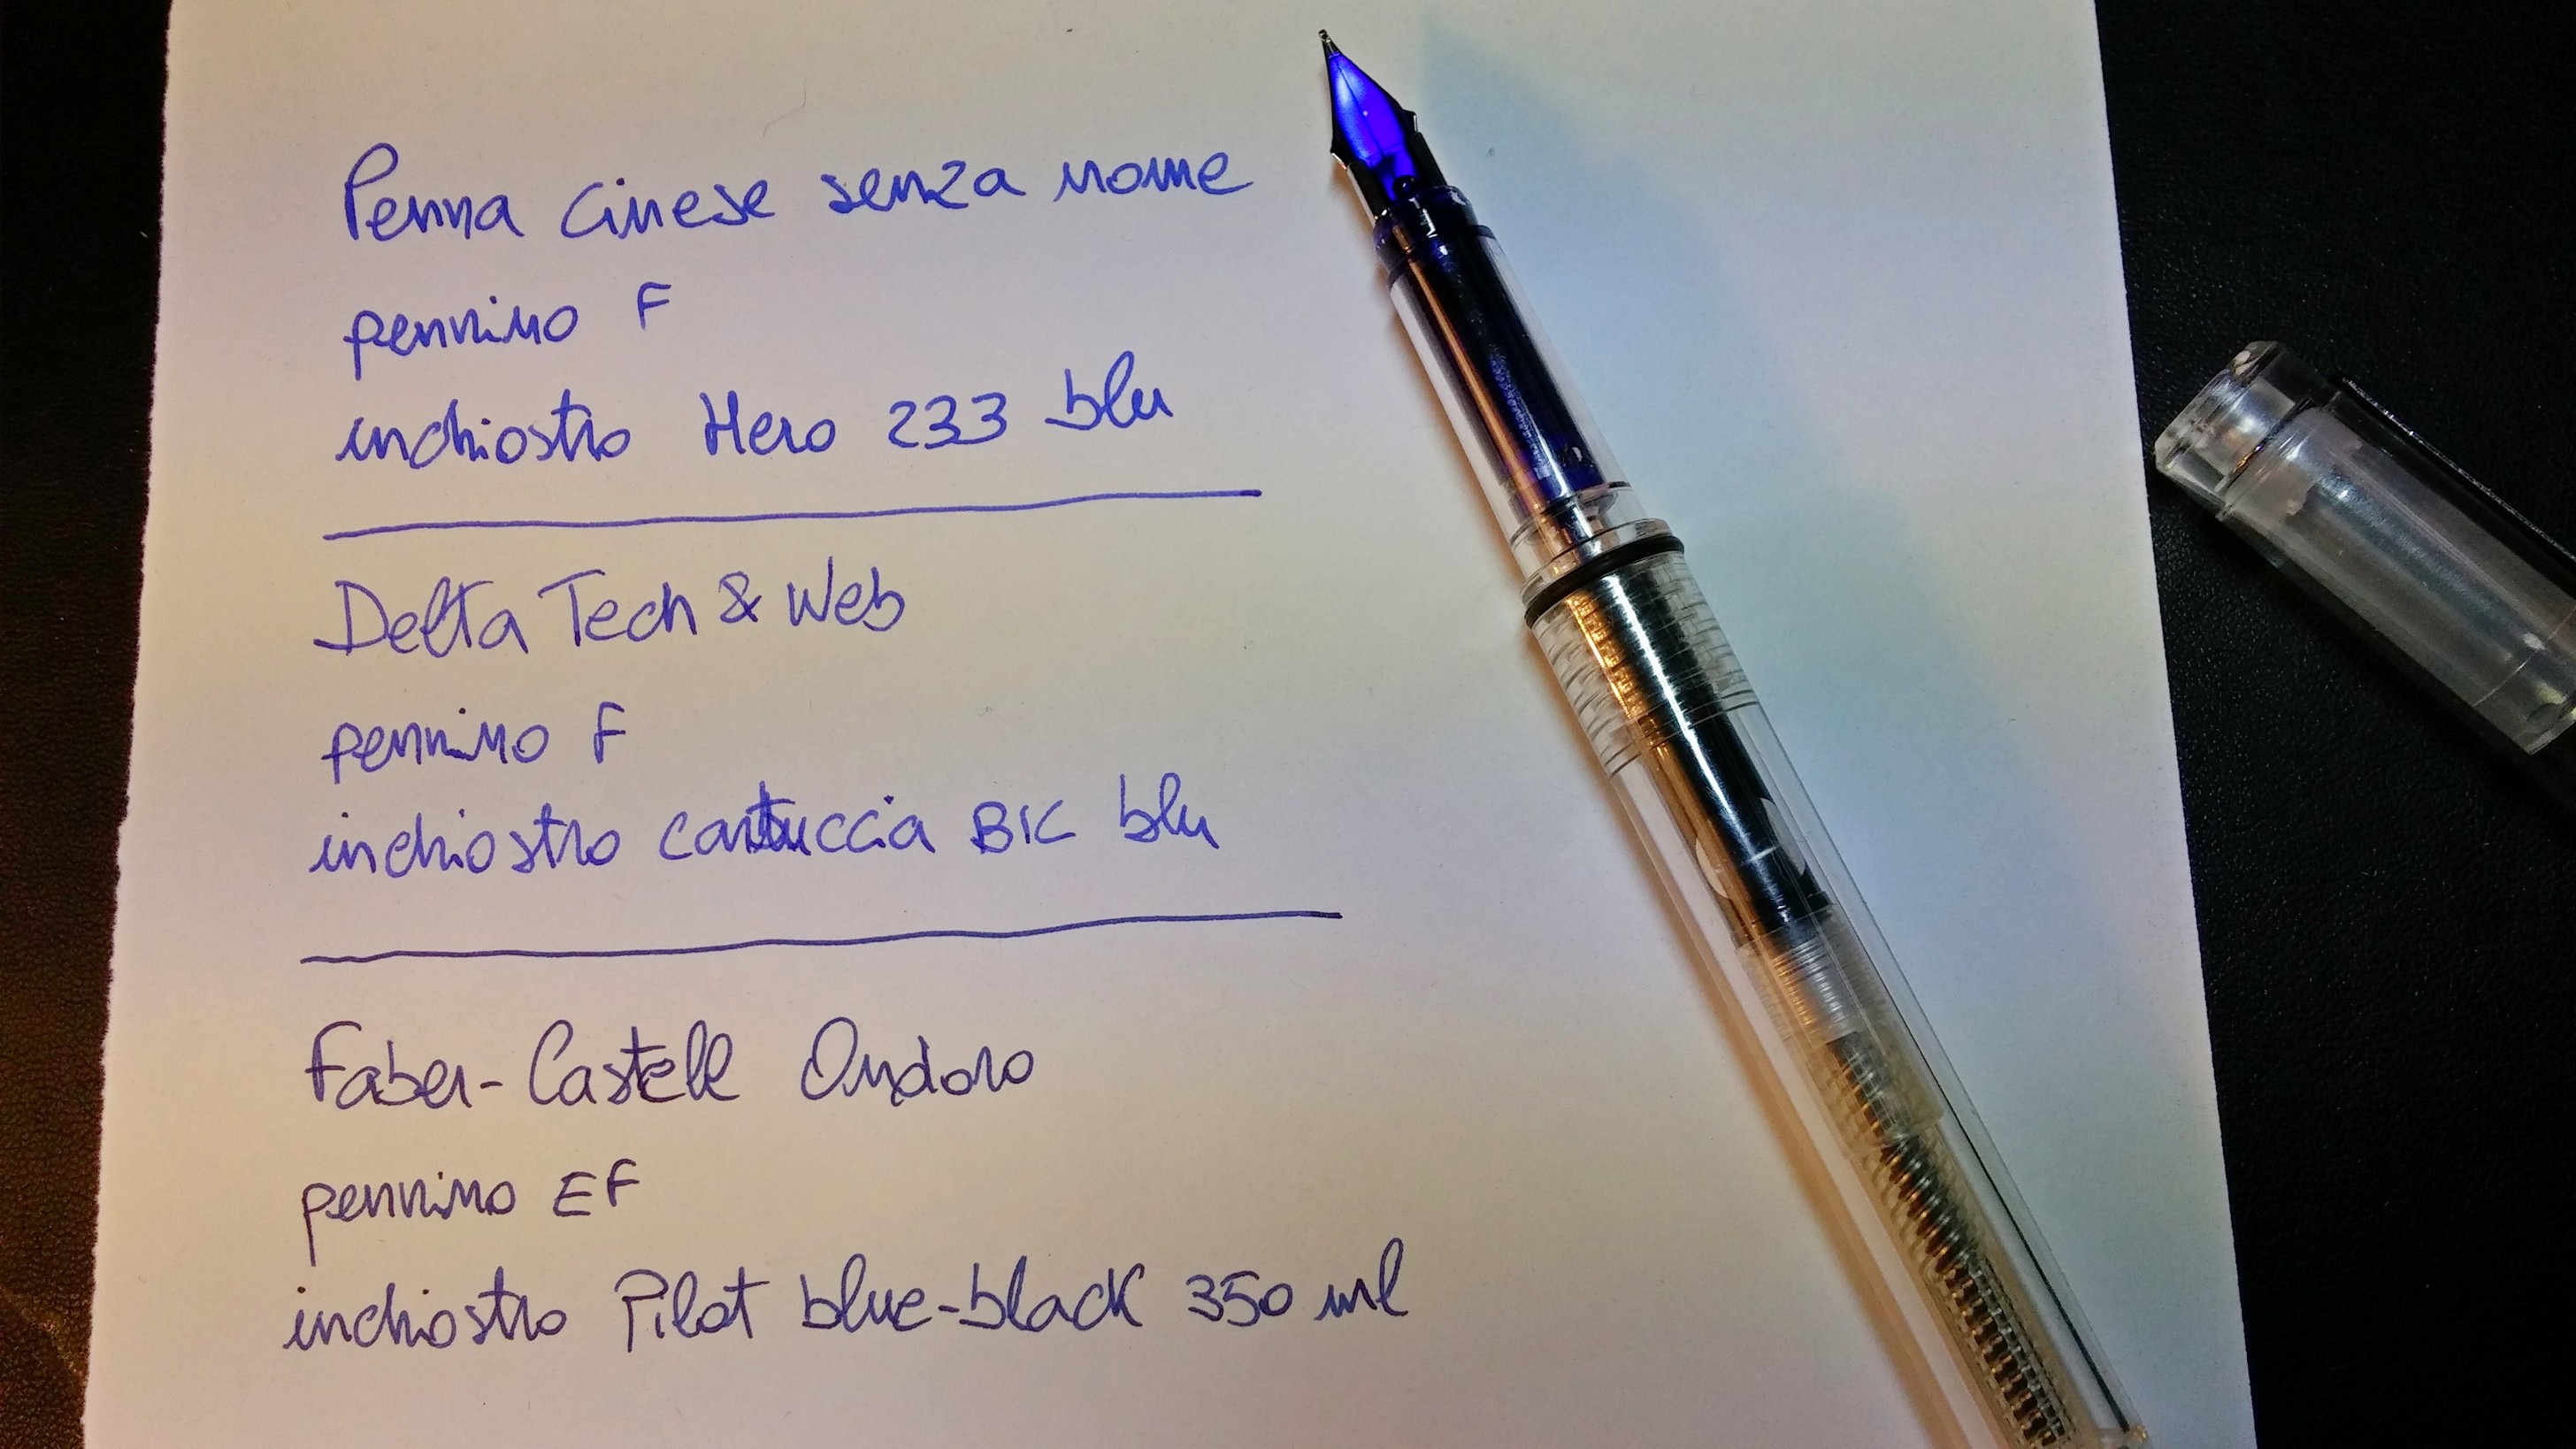 Penna cinese senza nome
pennino F
inchiostro Hero 233 blu
Delta Tech & Web
pennino F
inchiostro cartuccia BIC blu
Faber-Castell Ondoro
pennino EF
inchiostro Pilot blue-black 350 ml